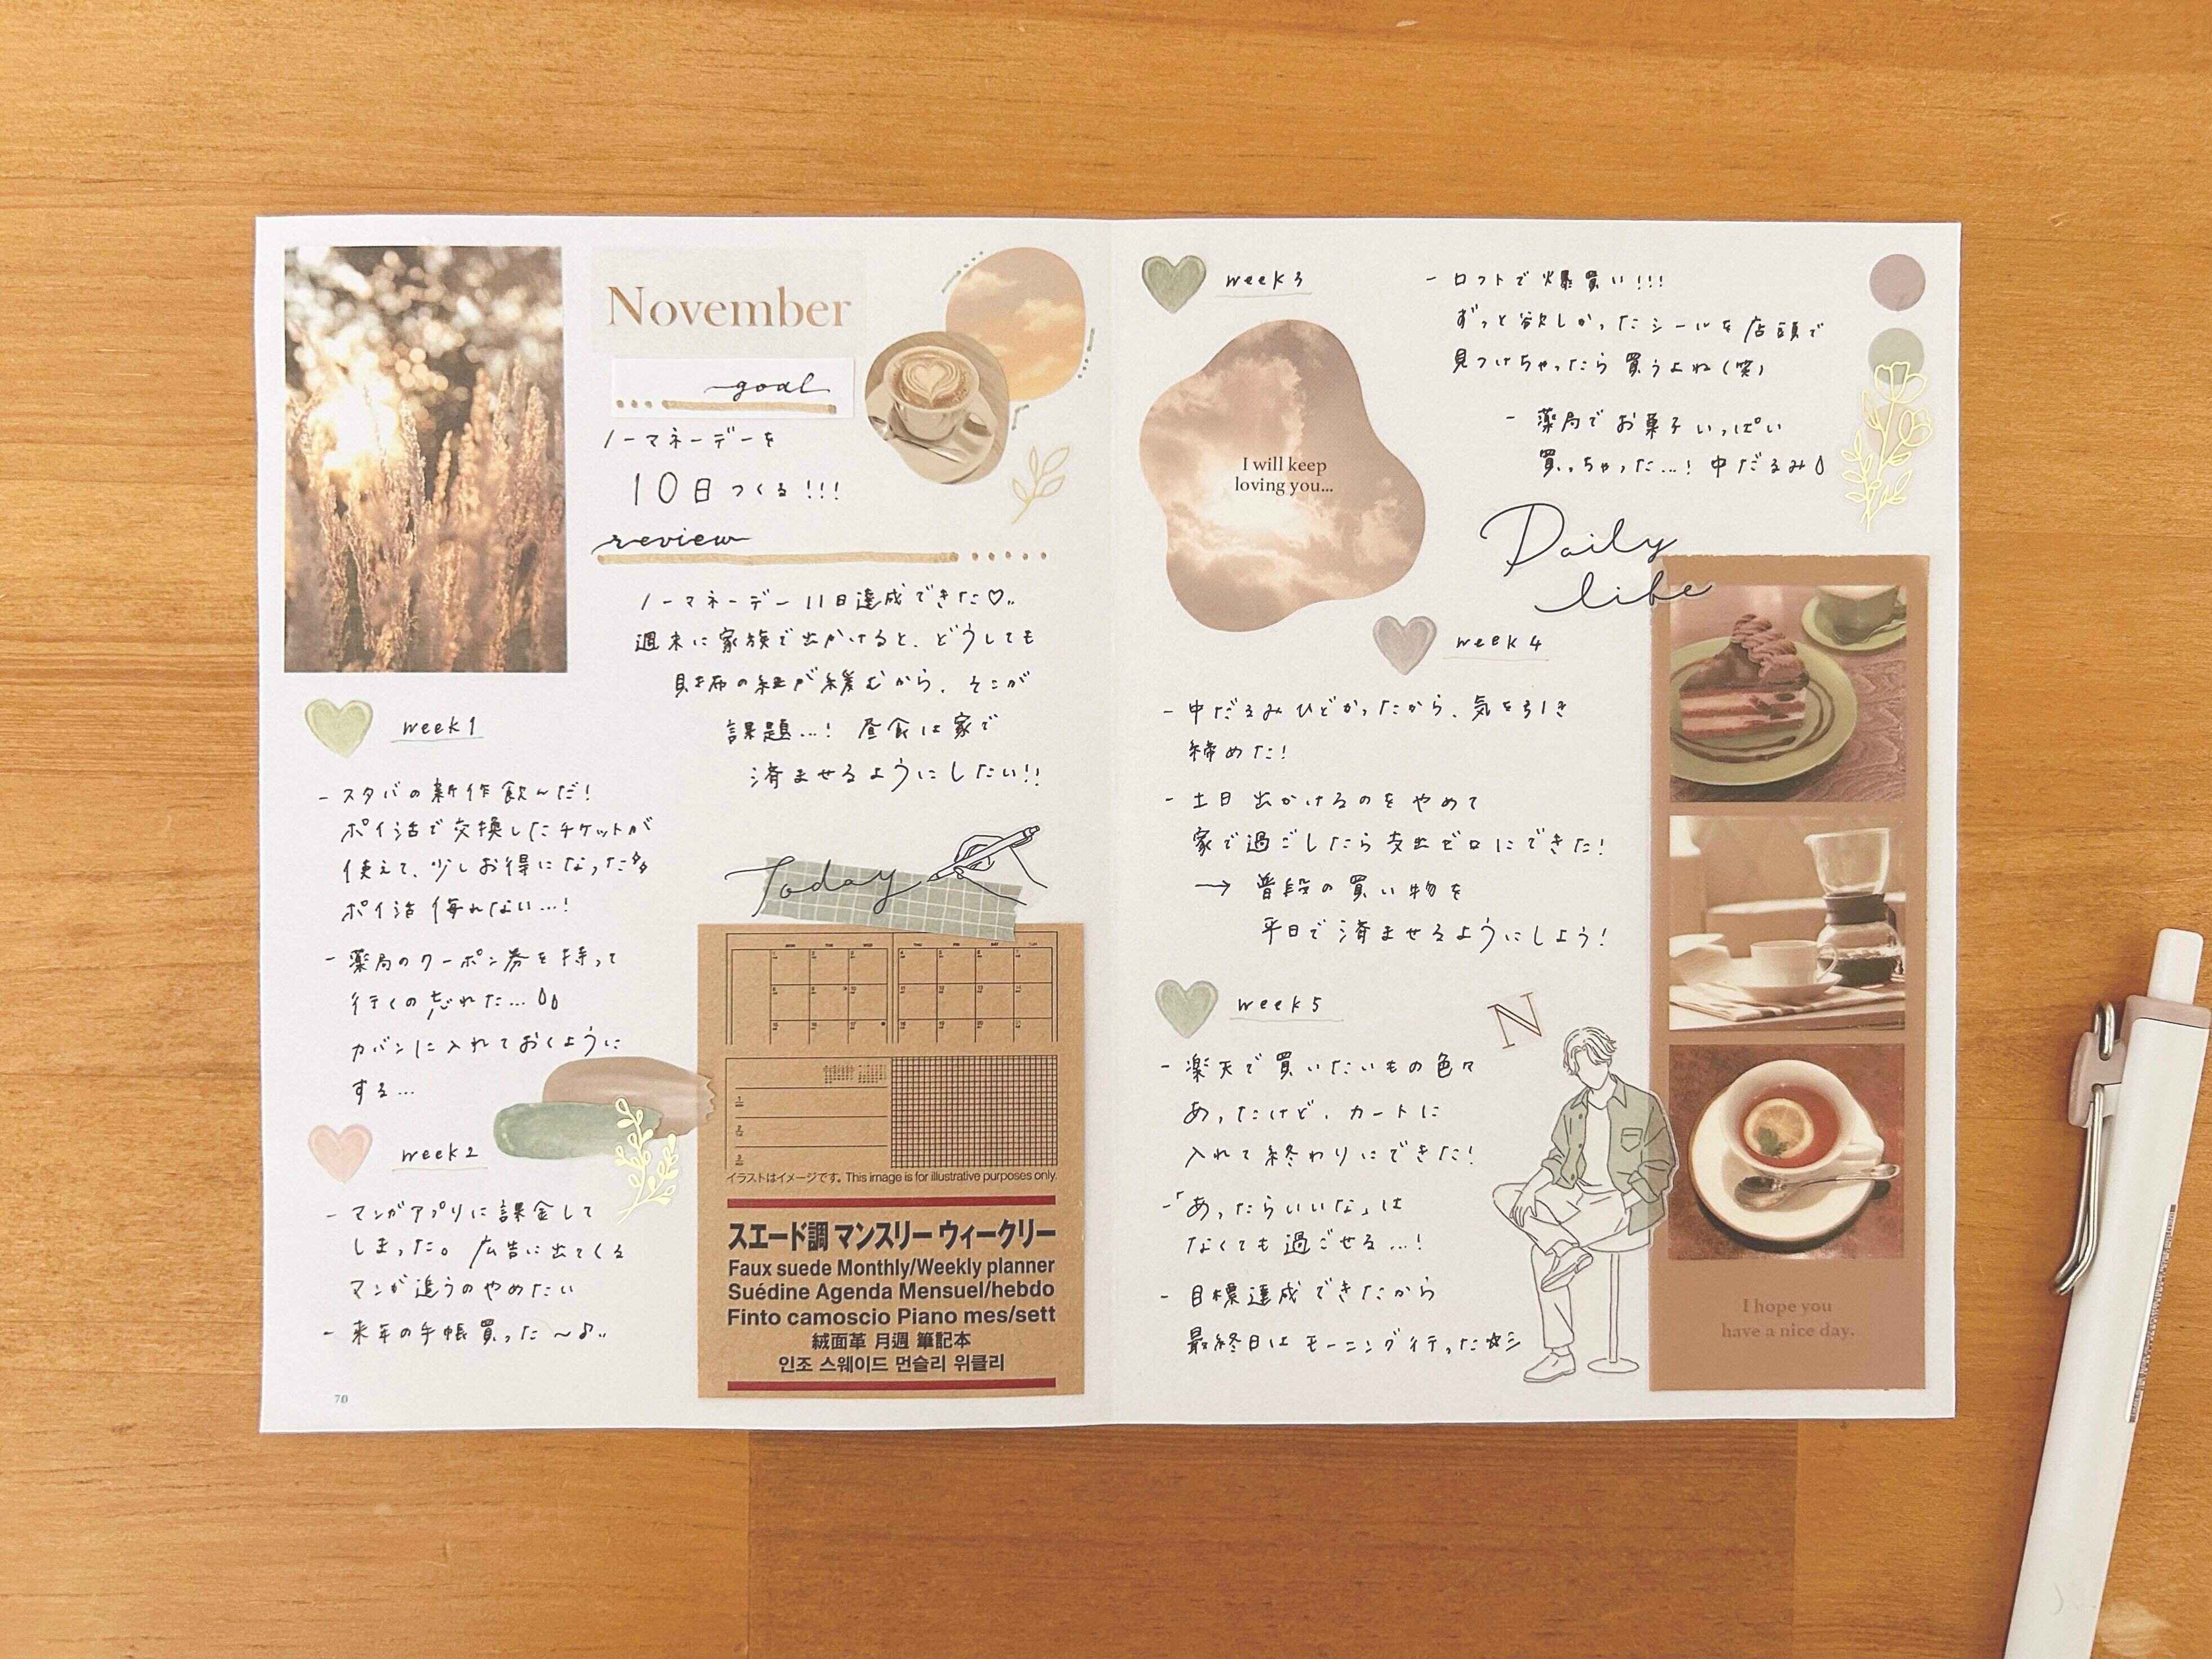 November
goal
ノーマネーデーを
10日つくる!!!
review
ノーマネーデー11日達成できた♡..
週末に家族で出かけると、どうしても
財布の紐が緩むから、そこが
課題...! 昼食は家で
済ませるようにしたい!!
week1
- スタバの新作飲んだ!
ポイ活で交換したチケットが
使えて、少しお得になった
ポイ活侮れない...!
- 薬局のクーポン券を持って
行くの忘れた...
カバンに入れておくように
する...
week2
- マンガアプリに課金して
しまった。広告に出てくる
マンガ追うのやめたい
- 来年の手帳買った〜♪..
70
Today
イラストはイメージです。This image is for illustrative purposes only.
スエード調 マンスリー ウィークリー
Faux suede Monthly/Weekly planner
Suédine Agenda Mensuel/hebdo
Finto camoscio Piano mes/sett
絨面革 月週 筆記本
인조 스웨이드 먼슬리 위클리
week3
I will keep
loving you...
- ロフトで爆買い!!!
ずっと欲しかったシールを店頭で
見つけちゃったら買うよね(笑)
- 薬局でお菓子いっぱい
買っちゃった...! 中だるみ
Daily
life
week4
- 中だるみひどかったから、気を引き
締めた!
- 土日出かけるのをやめて
家で過ごしたら支出ゼロにできた!
→ 普段の買い物を
平日で済ませるようにしよう!
week5
N
- 楽天で買いたいもの色々
あったけど、カートに
入れて終わりにできた!
- 「あったらいいな」は
なくても過ごせる...!
- 目標達成できたから
最終日はモーニング行った☆彡
I hope you
have a nice day.